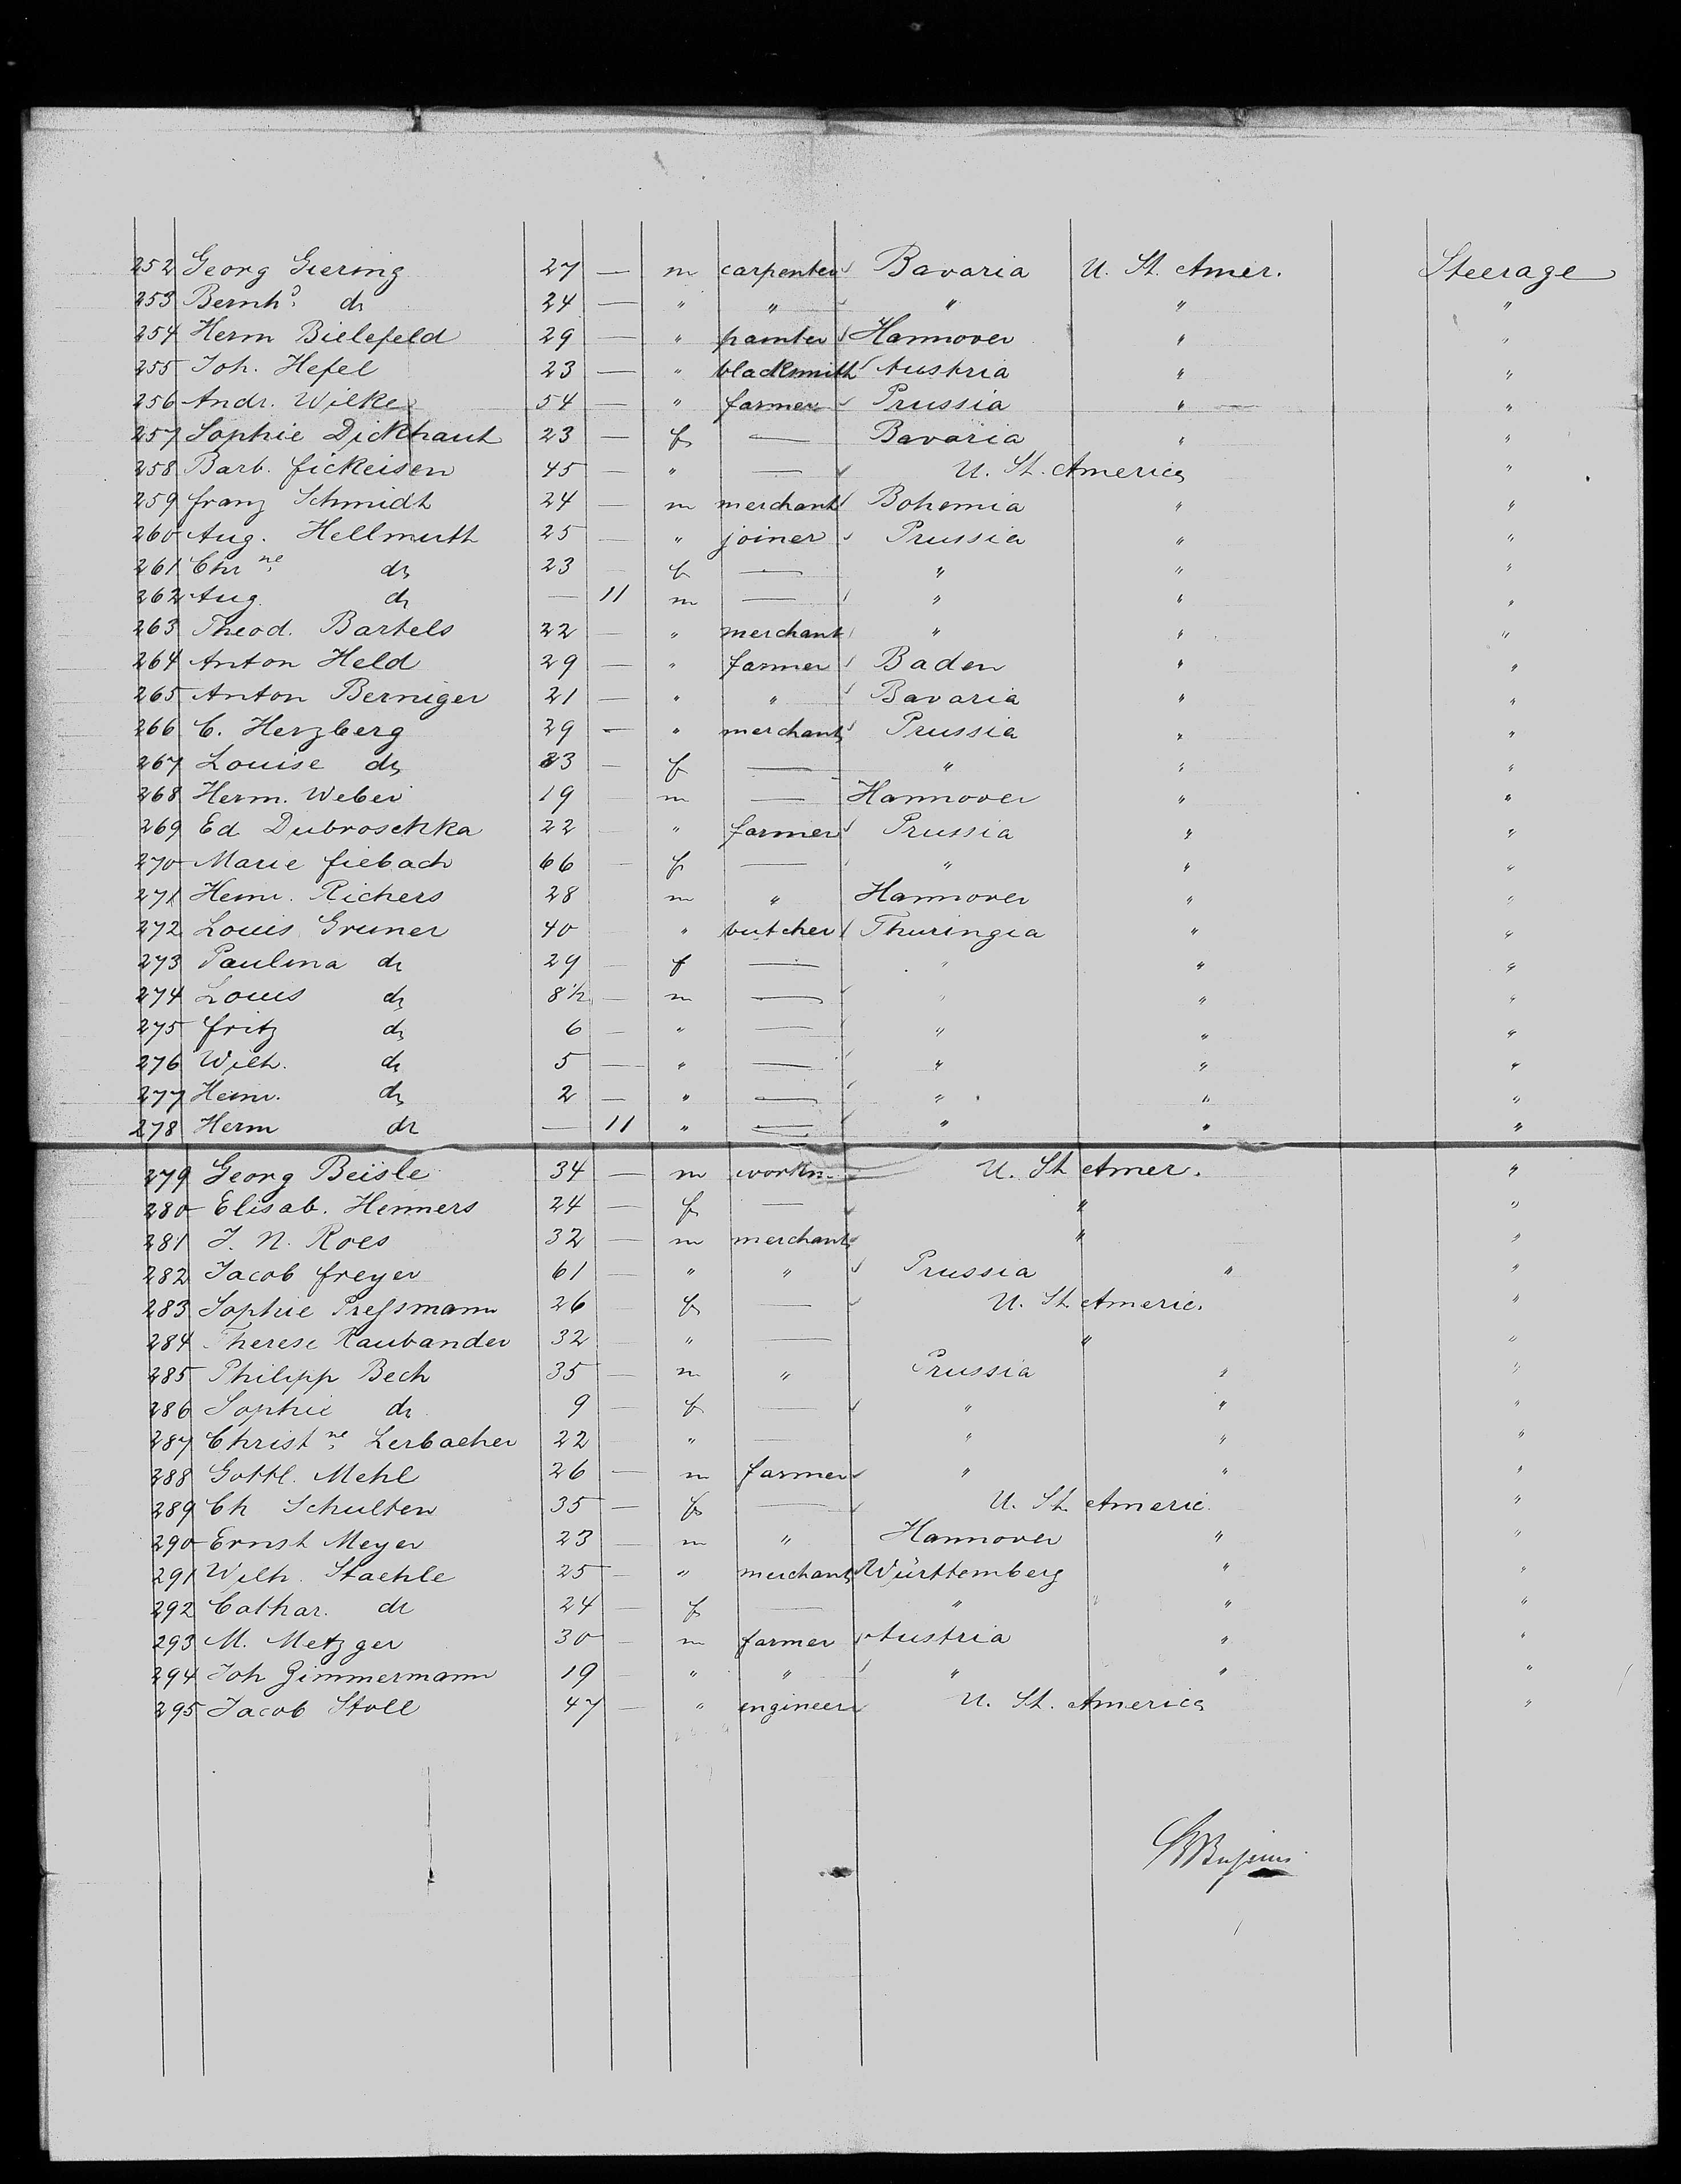 252 Georg Giering 27 — m carpenter Bavaria U. St. Amer. Steerage
253 Bernhd. do 24 — " " " " "
254 Herm Bielefeld 29 — " painter Hannover " "
255 Joh. Hefel 23 — " blacksmith Austria " "
256 Andr. Wilke 54 — " farmer Prussia " "
257 Sophie Dickhaut 23 — f — Bavaria " "
258 Barb. Fickeisen 45 — " — U. St. America "
259 Franz Schmidt 24 — m merchant Bohemia " "
260 Aug. Hellmuth 25 — " joiner Prussia " "
261 Chrne. do 23 — f — " " "
262 Aug. do — 11 m — " " "
263 Theod. Bartels 22 — " merchant " " "
264 Anton Held 29 — " farmer Baden " "
265 Anton Berniger 21 — " " Bavaria " "
266 C. Herzberg 29 — " merchant Prussia " "
267 Louise do 23 — f — " " "
268 Herm. Weber 19 — m — Hannover " "
269 Ed Dubroschka 22 — " farmer Prussia " "
270 Marie Fiebach 66 — f — " " "
271 Heinr. Richers 28 m " Hannover " "
272 Louis Gruner 40 — " butcher Thuringia " "
273 Paulina do 29 — f — " " "
274 Louis do 8½ — m — " " "
275 Fritz do 6 — " — " " "
276 Wilh. do 5 — " — " " "
277 Heinr. do 2 — " — " " "
278 Herm do — 11 " — " " "
279 Georg Beisle 34 — m workm. U. St Amer. "
280 Elisab. Henners 24 — f — " "
281 J. N. Roes 32 — m merchant " "
282 Jacob Freyer 61 — " " Prussia " "
283 Sophie Preſsmann 26 — f — U. St Americ. "
284 Therese Raubander 32 — " — " "
285 Philipp Bech 35 — m " Prussia " "
286 Sophie do 9 — f — " " "
287 Christne. Lerbacher 22 — " — " " "
288 Gottl. Mehl 26 — m farmer " " "
289 Ch Schulten 35 — f — U. St Americ. "
290 Ernst Meyer 23 — m " Hannover " "
291 Wilh. Staehle 25 — " merchant Württemberg " "
292 Cathar. do 24 — f — " " "
293 M. Metzger 30 — m farmer Austria " "
294 Joh Zimmermann 19 — " " " " "
295 Jacob Stoll 47 — " engineer U. St. America "